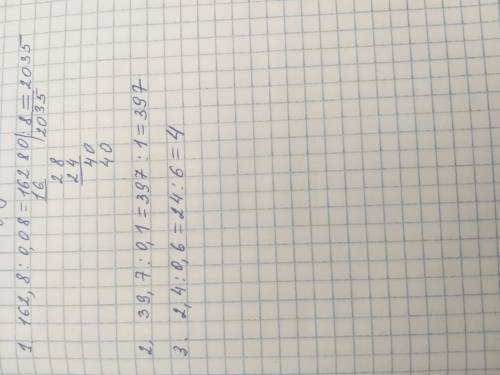 1 162,8 : 0,08 = 16280 | : 8 = 2035
16 2035
28
24
40
40
2, 39,7 : 0,1 = 397 : 1 = 397
3. 2,4 : 0,6 = 24 : 6 = 4